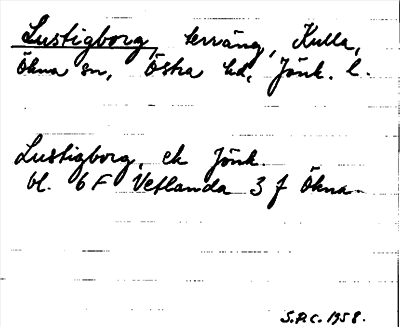 Lustigborg, terräng, Kulla,
Ökna sn, Östra hd, Jönk. l.
Lustigborg, ek Jönk.
bl. 6 F Vetlanda 3 f Ökna.
S.P.C. 1958.